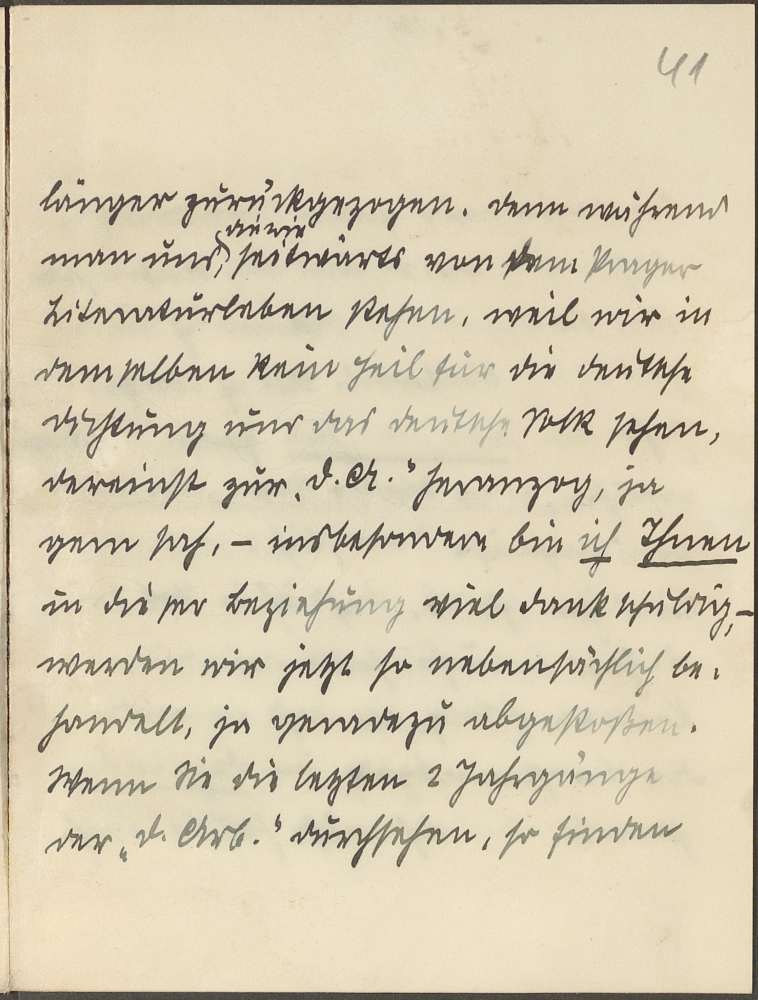 41
länger zurückgezogen. Denn während
die wir
man uns, seitwärts von dem Prager
Literaturleben stehen, weil wir in
demselben kein Heil für die deutsche
Dichtung und das deutsche Volk sehen,
dereinst zur „D. A.“ heranzog, ja
gern sah, – insbesondere bin ich Ihnen
in dieser Beziehung viel Dank schuldig, –
werden wir jetzt so nebensächlich be-
handelt, ja geradezu abgestoßen.
Wenn Sie die letzten 2 Jahrgänge
der „D. Arb.“ durchsehen, so finden